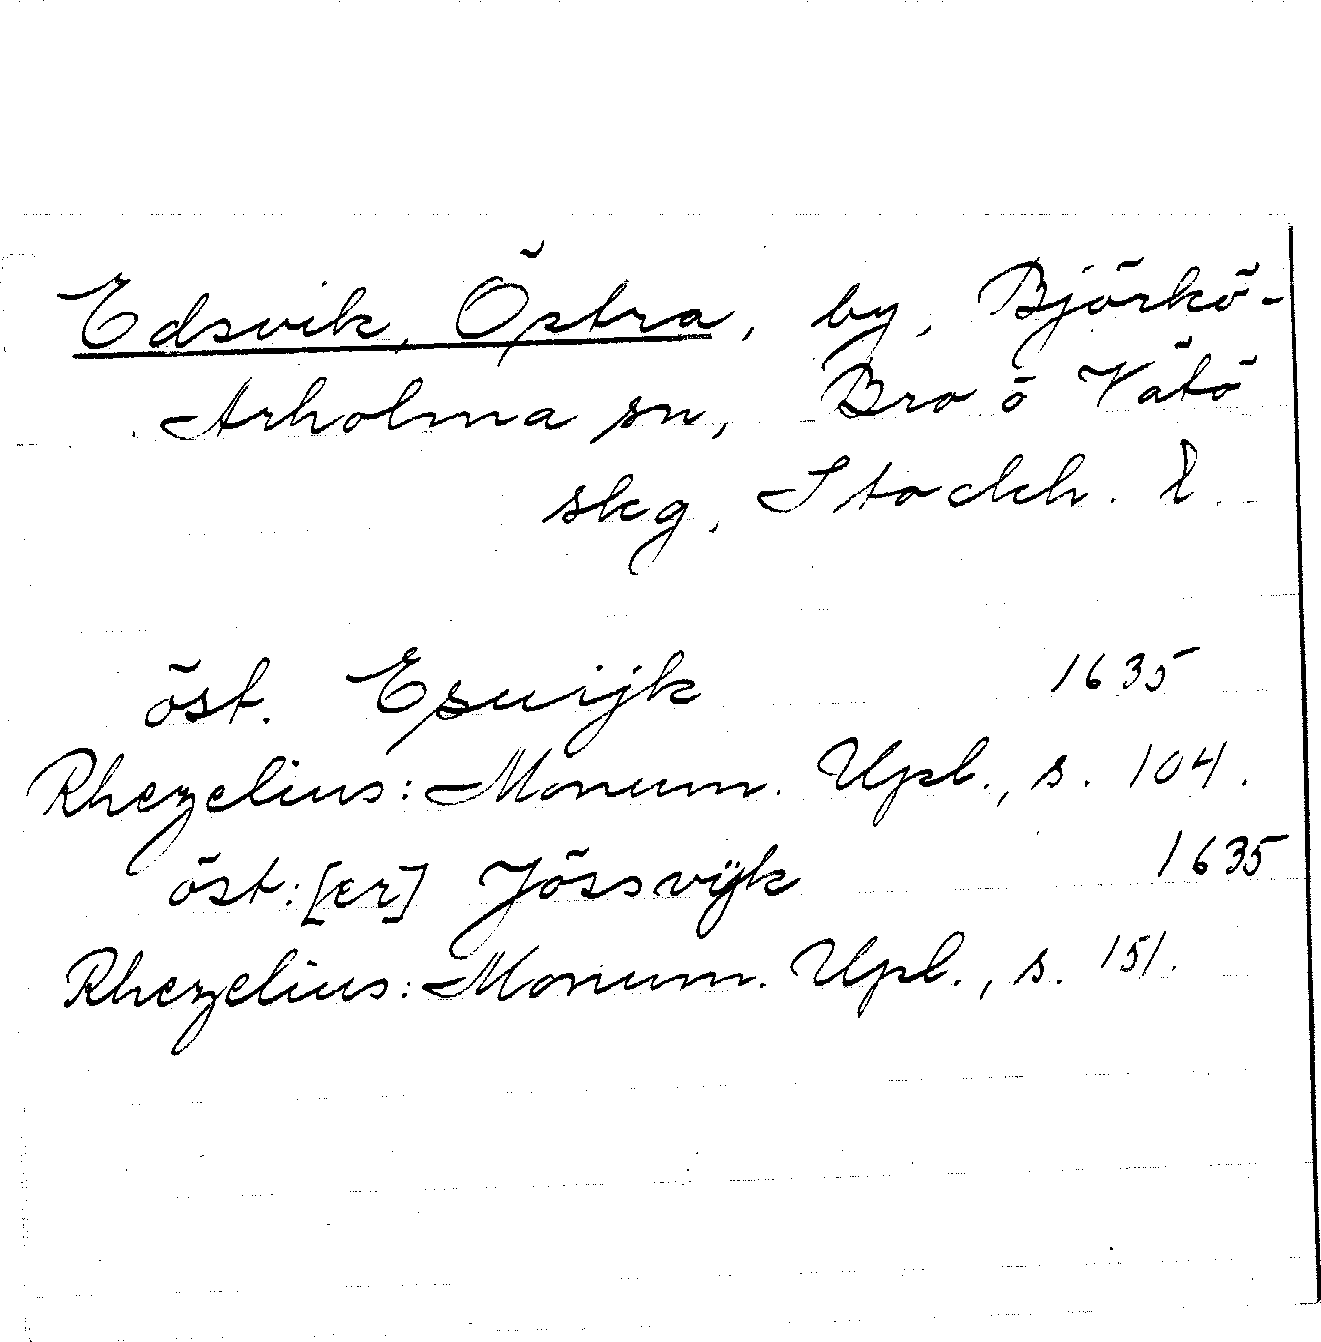 Edsvik, Östra, by, Björkö-
Arholma sn, Bro o Vätö
skg, Stockh. l.
öst. Esuijk 1635
Rhezelius: Monum. Upl., s. 104.
öst:[er] Jössvijk 1635
Rhezelius: Monum. Upl., s. 151.